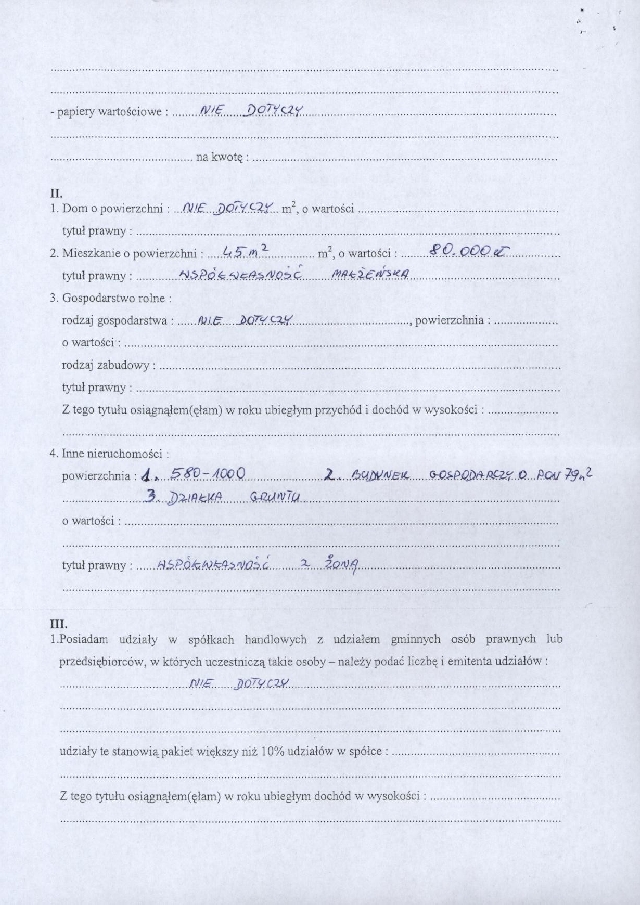 - papiery wartościowe : NIE DOTYCZY
na kwotę :
II.
1. Dom o powierzchni : NIE DOTYCZY m², o wartości
tytuł prawny :
2. Mieszkanie o powierzchni : 45 m² m², o wartości : 80.000 zł
tytuł prawny : WSPÓŁWŁASNOŚĆ MAŁŻEŃSKA
3. Gospodarstwo rolne :
rodzaj gospodarstwa : NIE DOTYCZY, powierzchnia :
o wartości :
rodzaj zabudowy :
tytuł prawny :
Z tego tytułu osiągnąłem(ęłam) w roku ubiegłym przychód i dochód w wysokości :
4. Inne nieruchomości :
powierzchnia : 1. 580-1000 2. BUDYNEK GOSPODARCZY O POW 79m²
3. DZIAŁKA GRUNTU
o wartości :
tytuł prawny : WSPÓŁWŁASNOŚĆ Z ŻONĄ
III.
1.Posiadam udziały w spółkach handlowych z udziałem gminnych osób prawnych lub
przedsiębiorców, w których uczestniczą takie osoby – należy podać liczbę i emitenta udziałów :
NIE DOTYCZY
udziały te stanowią pakiet większy niż 10% udziałów w spółce :
Z tego tytułu osiągnąłem(ęłam) w roku ubiegłym dochód w wysokości :